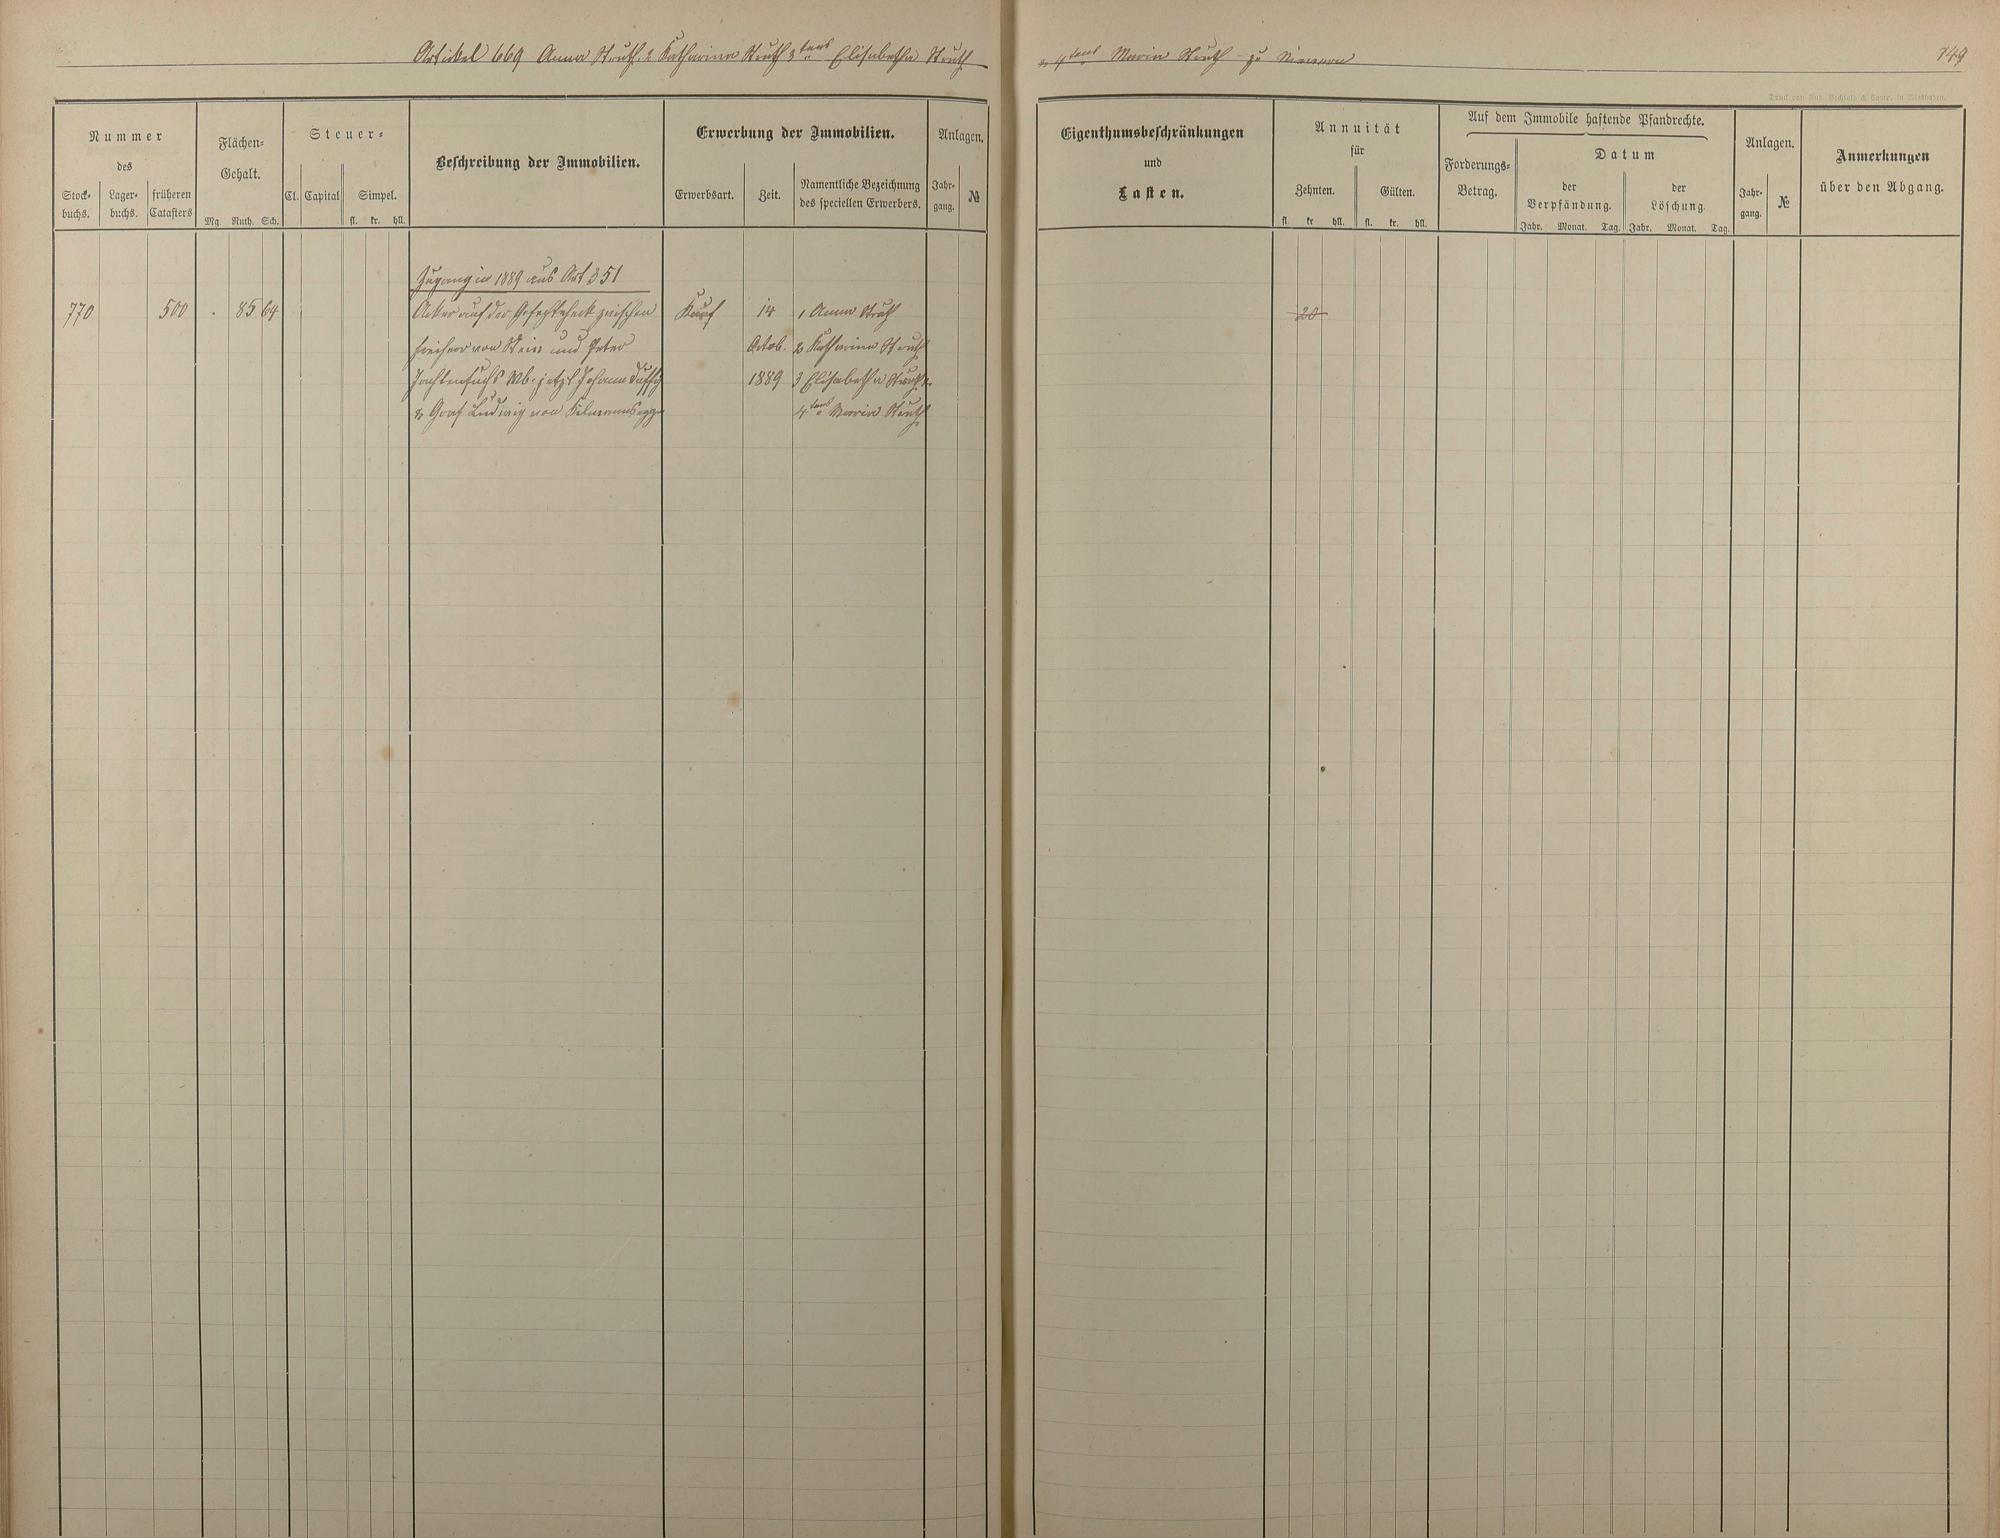 Artikel 669 Anna Struth. 2 Katharina Struth 3tens Elisabetha Struth
& 4tens Maria Struth zu
749
Druck von Rud. Bechtold & Comp. in Wiesbaden.
Nummer
des
Stock-
buchs.
Lager-
buchs.
früheren
Catasters
Flächen-
Gehalt.
Mg. Ruth. Sch.
Steuer-
Cl. Capital
Simpel.
fl. kr. hll.
Beschreibung der Immobilien.
Erwerbung der Immobilien.
Erwerbsart.
Zeit.
Namentliche Bezeichnung
des speciellen Erwerbers.
Anlagen.
Jahr-
gang.
№
Eigenthumsbeschränkungen
und
Lasten.
Annuität
für
Zehnten.
Gülten.
fl. kr hll. fl. kr. hll.
Auf dem Immobile haftende Pfandrechte.
Forderungs-
Betrag.
Datum
der
Verpfändung.
der
Löschung.
Jahr. Monat. Tag. Jahr. Monat. Tag.
Anlagen.
Jahr-
gang.
№
Anmerkungen
über den Abgang.
Zugang in 1889 aus Art 351
770 500 . 85 64 Acker auf der zwischen Kauf 14 1 Anna Struth 20
Freiherr von Stein und Peter Octob. 2 Katharina Struth
Wb. jetzt Johann 1889 3 Elisabetha Struth
& Graf Ludwig von 4tens Maria Struth